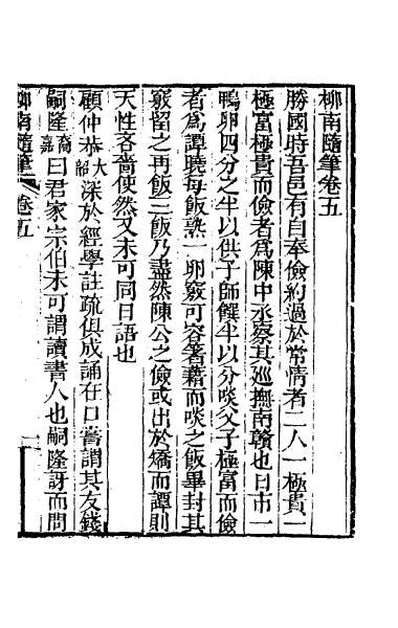 柳南隨筆卷五
勝國時吾邑有自奉儉約過於常情者二人一極貴一
極富極貴而儉者為陳中丞察其巡撫南贛也日市一
鴨卵四分之半以供子師饌半以分啖父子極富而儉
者為譚曉每飯熟一卵竅可容箸藉而啖之飯畢封其
竅留之再飯三飯乃盡然陳公之儉或出於矯而譚則
天性吝嗇使然又未可同日語也
顧仲恭大韶深於經學註疏俱成誦在口嘗謂其友錢
嗣隆裔嘉曰君家宗伯未可謂讀書人也嗣隆訝而問
柳南隨筆 卷五 一